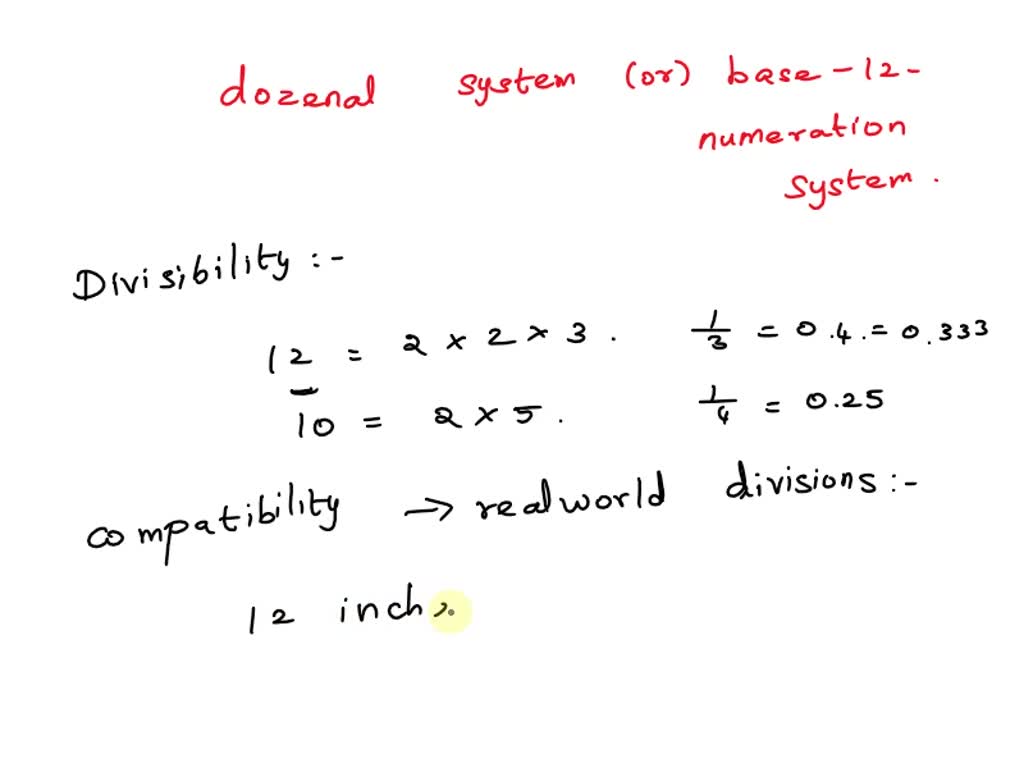 dozenal system (or) base-12-
numeration
system.
Divisibility :-
12 = 2 × 2 × 3. 1/3 = 0.4. = 0.333
10 = 2 × 5. 1/4 = 0.25
compatibility → realworld divisions :-
12 inch